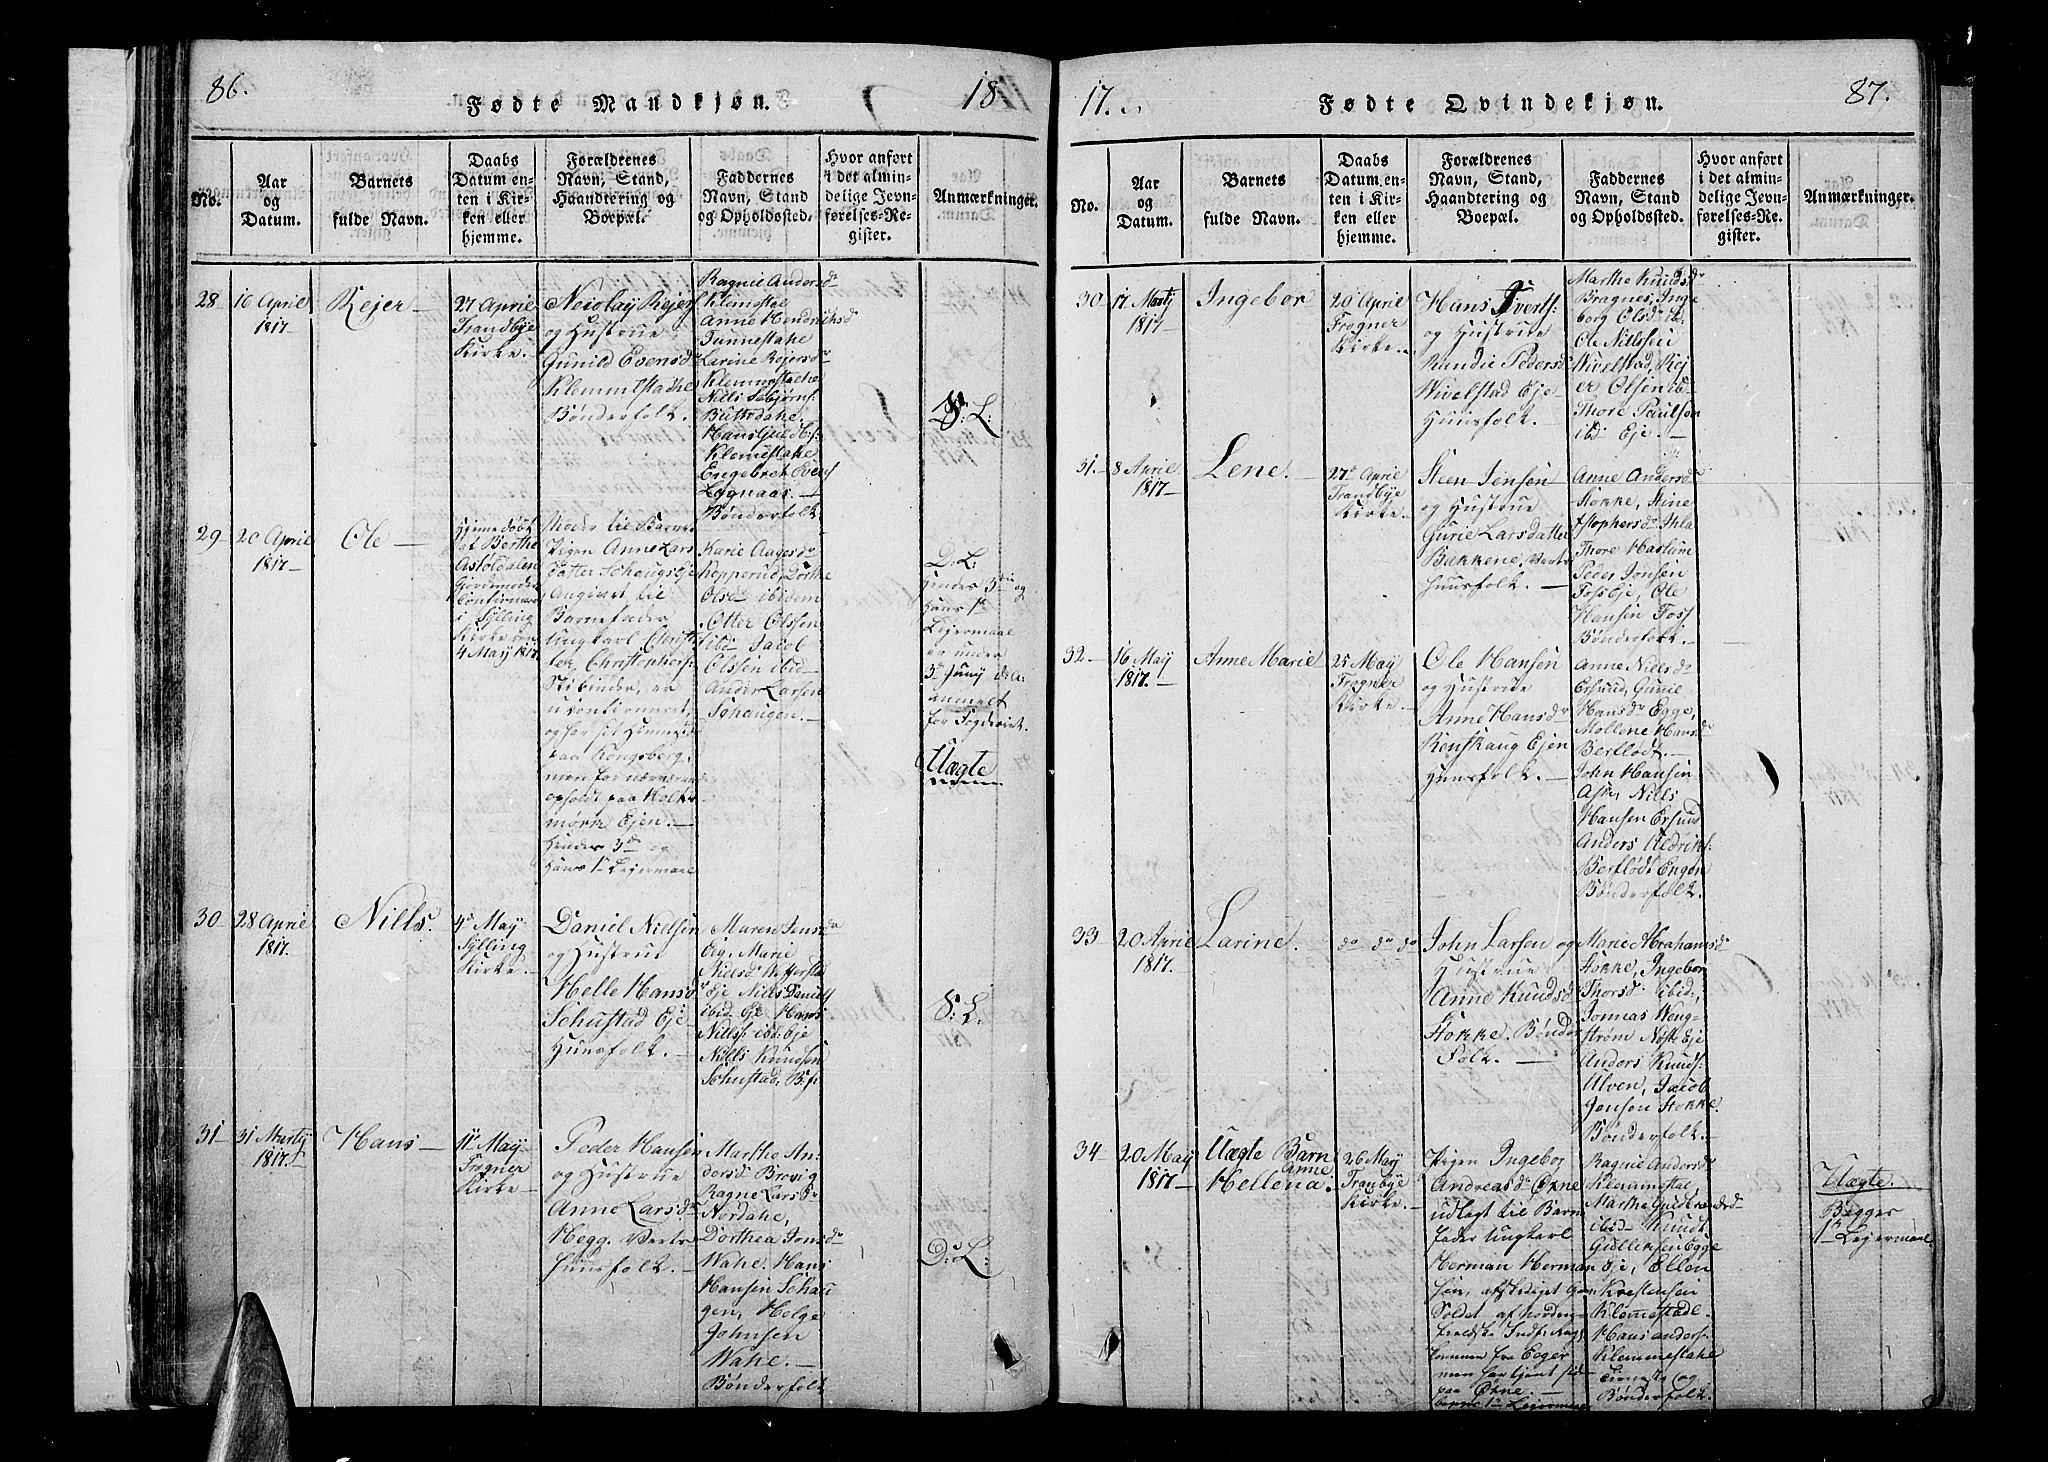 86.
Fødte Mandkjøn.
18
No.
Aar
og
Datum.
Barnets
fulde Navn.
Daabs
Datum en-
ten i Kir-
ken eller
hjemme.
Forældrenes
Navn, Stand,
Haandtering og
Boepæl.
Faddernes
Navn, Stand
og Opholdssted.
Hvor anført
i det almin-
delige Jevn-
førelses-Re-
gister.
Anmærkninger.
28
16 April
1817
Rejer
27 April
Trandbye
Kirke.
Nicolay Rejers
og Hustrue
Gunild Evensdr
Klemmetstadhe
Bønderfolk.
Ragnie Andersdr
Klemstae
Anne Hendrichsdr
Tunnestahe
Larine Rejersdr
Klemmestache
Nills
Hans Guldb:
Klemestahe
Engebret Evens
Lognaas.
Bønderfolk.
S: L:
29
20 April
1817
Ole
Hjemedøbt
af Berthe
Astoldalen
Gjordemoder
Confirmeret
i Sylling
Kirke den
4 May 1817
Moder til Barnet
Pigen Anne Lars
datter Schaugseje
Angivet til
Barnefader
Ungkarl Christof
fer Christophers:
Stibinder, er
uconfirmeret,
og har sit Hiemsted
paa Kongsberg,
men for nærværende
opholdt paa Holts
mørk Ejen.
Hendes 3de og
Hans 1te Lejermaal
Karie Aagesdr
Kopperud, Dorthe
Olsdr ibidem
Otter Olssen
ibid Jacob
Olssen ibid
Ander Larsen
Schaugen.
D. L:
Hendes 3die og
Hans 1te
Lejermaal
er under
3de Juny d: A:
anmelt
for Fogderiet.
Uægte
30
28 April
1817.
Nills.
4de May
Sylling
Kirke.
Daniel Nielsen
og Hustrue
Helle Hansdr
Schustad Eje
Huusfolk.
Maren Jensdr
Eje, Marie
Nielsdr
Eje Nills Daniels
ibid Eje Hans
Nills: ibid: Eje
Nills Knudsen
Schustad, B: f:
S: L:
31
31 Marty
1817.
Hans
11te May
Frogner
Kirke
Peder Hansen
og Hustrue
Anne Larsdr
Hegg. Verts
huusfolk.
Marthe An-
dersdr Brovig
Ragne Larsdr
Nordahe,
Dorthea Jonsdr
Wahe. Hans
Hansen Schau
gen, Helge
Johnsen
Wahe.
Bønderfolk
D: L:
17.
Fødte Qvindekjøn.
87.
No.
Aar
og
Datum.
Barnets
fulde Navn.
Daabs
Datum en-
ten i Kir-
ken eller
hjemme.
Forældrenes
Navn, Stand,
Haandtering og
Boepæl.
Faddernes
Navn, Stand
og Opholdssted.
Hvor anført
i det almin-
delige Jevn-
førelses-Re-
gister.
Anmærkninger.
30
17 Marty
1817
Ingebor
20 April
Frogner
Kirke.
Hans Iverts:
og Hustrue
Randie Pedersdr
Wivelstad Eje
Huusfolk.
Marthe Knudsdr
Bragnes, Inge
borg Olsdr ib.
Ole Nilssen
Wivelstad, Rej
er Olsen ib
Thore Paulsen
ibd Eje.
31.
8 April
1817
Lene.
27de April
Trandbye
Kirke.
Steen Jensen
og Hustrue
Gurie Larsdatter
Bakkene, Verts
huusfolk.
Anne Andersdr
Stokke, Stine
Thore Haslum
Peder Jonsen
Foss Eje, Ole
Hansen Foss
Bønderfolk.
32
16 May
1817.
Anne Marie
25 May
Frogner
Kirke.
Ole Hansen
og Hustrue
Anne Hansdr
Renskaug Ejen
Huusfolk.
Anne Nielsdr
Ersrud, Gunil
Hansdr Egge,
Mollene Hansdr
Berflødt.
John Hansen
Ask, Nills
Hansen Ersrud
Anders Uldrik:
Berflødt Engen
Bønderfolk.
33
20 April
1817.
Larine.
do do do
John Larsen og
Hustrue
Anne Knudsdr
Stokke. Bønder
Folk.
Marie Abrahamsdr
Stokke, Ingebor
Thorsdr ibid:
Jonneas Weng-
strøm Nøste Eje
Anders Knuds:
Ulven, Jacob
Jensen Stokke.
Bønderfolk.
34
20 May
1817
Uægte Barn
Anne
Hellena.
26 May
Tranbye
Kirke.
Pigen Ingebor
Andreasdr Øxne
udlagt til Barn
fader Ungkarl
Herman Herman
sen, afskediget Gev:
Soldat af Norden-
fieldske Inft: Reg:
kommen fra Eger
men har tjent sid-
paa Øxne.
begges 1te Lejermaal
Ragnie Andersdr
Klemmestae,
Marthe Guldbrandsd
ibid Knud
Gullichsen Egge
Eje, Ellen
Kristensen
Klommestade.
Hans anders:
Klemmestahe
Tieneste og
Bønderfolk.
Uægte.
Begges
1te Lejermaal.